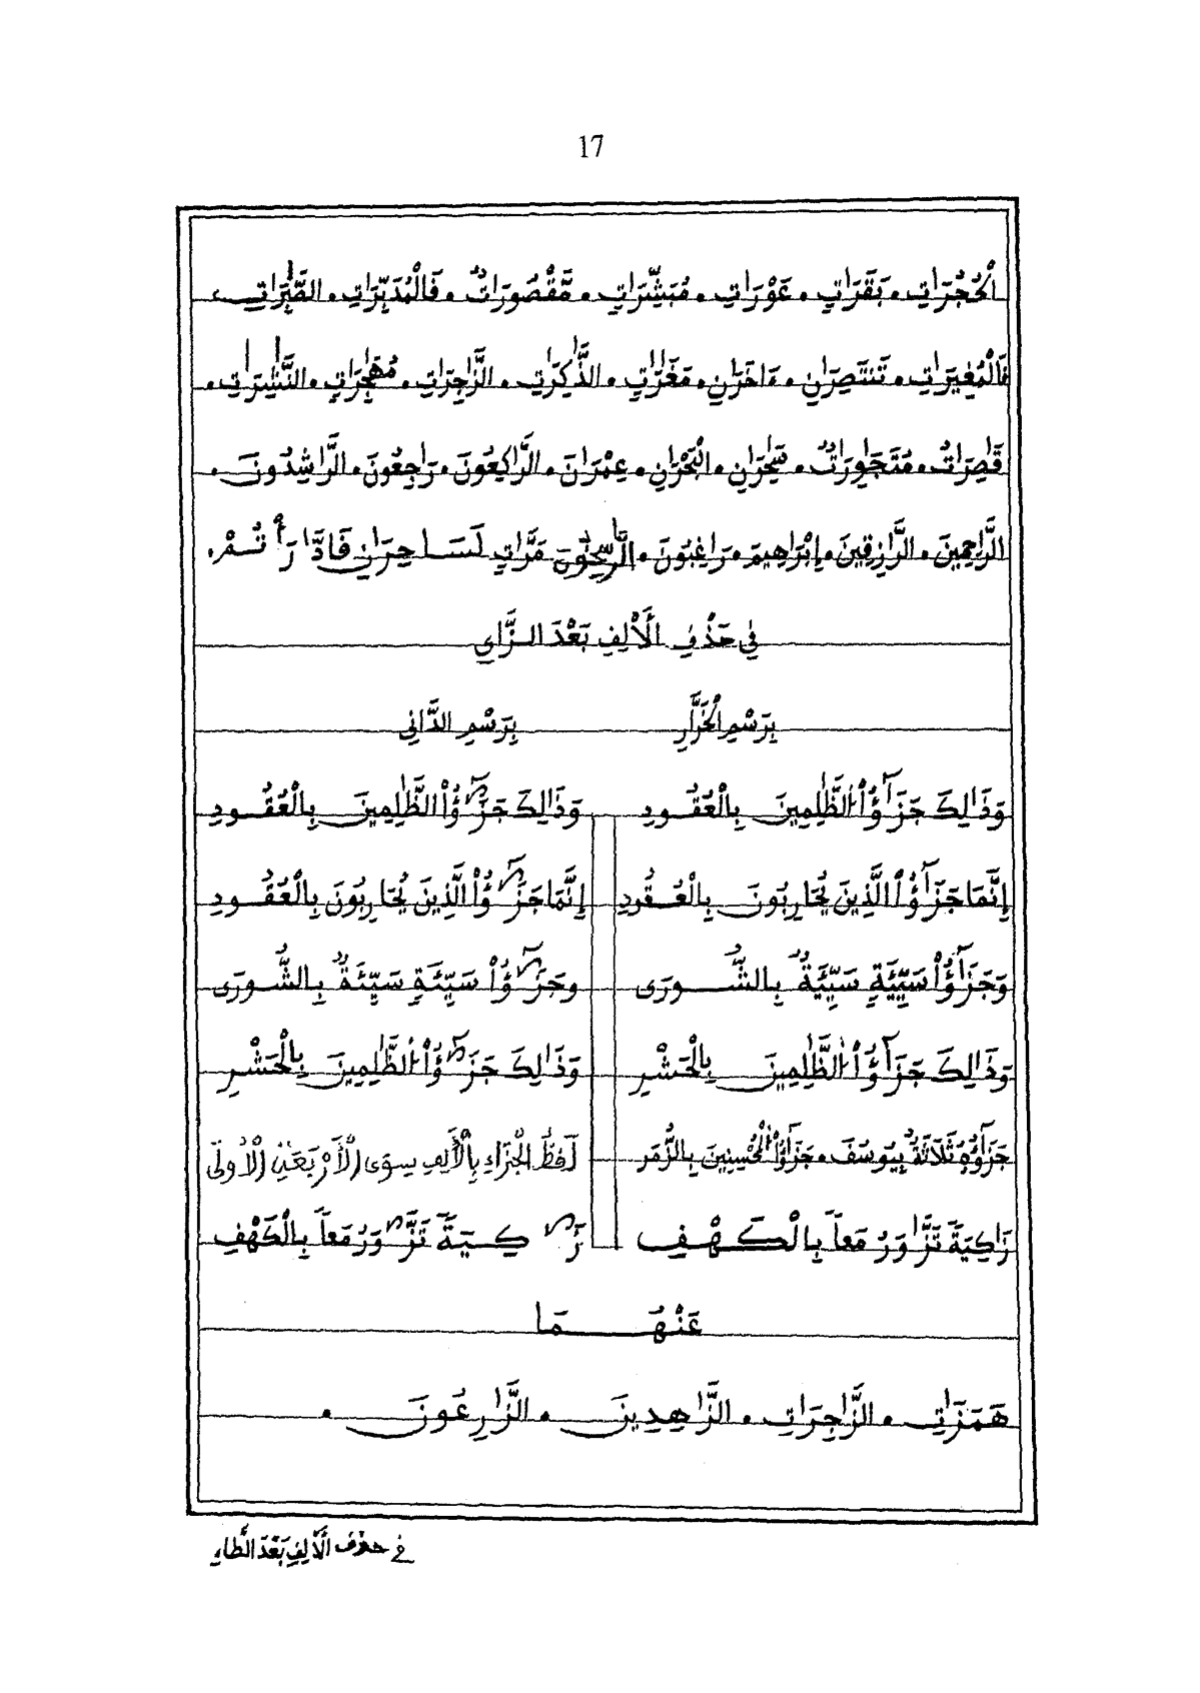 17
اَ۬لْحُجُرَٰتِ . بَقَرَٰتٖ . عَوْرَٰتِ . مُبَشِّرَٰتٖ . مَّقْصُورَٰتٞ . فَالْمُدَبِّرَٰتِ . الصَّٰبِرَٰتِ .
فَالْمُغِيرَٰتِ . تَنتَصِرَٰنِ . ءَاخَرَٰنِ . مَغَٰرَٰتٍ . الذَّٰكِرَٰتِ . الزَّٰجِرَٰتِ . مُهَٰجِرَٰتٖ . النَّٰشِرَٰتِ .
قَٰصِرَٰتُ . مُتَجَٰوِرَٰتٞ . سَٰحِرَٰنِ . الْبَحْرَٰنِ . عِمْرَٰنَ . الرَّٰكِعُونَ . رَٰجِعُونَ . الرَّٰشِدُونَ .
الرَّٰحِمِينَ . الرَّٰزِقِينَ . إِبْرَٰهِيمَ . رَٰغِبُونَ . الرَّٰسِخُونَ مَرَّٰتٖ لَسَٰحِرَٰنِ فَادَّٰرَٰٔتُمْ .
فِي حَذْفِ الَالِفِ بَعْدَ الزَّايِ
بِرَسْمِ الْخَرَّازِ بِرَسْمِ الدَّانِي
وَذَٰلِكَ جَزَٰٓؤُا۟ الظَّٰلِمِينَ بِالْعُقُودِ وَذَٰلِكَ جَزَٰٓؤُا۟ الظَّٰلِمِينَ بِالْعُقُودِ
إِنَّمَا جَزَٰٓؤُا۟ الَّذِينَ يُحَارِبُونَ بِالْعُقُودِ إِنَّمَا جَزَٰٓؤُا۟ الَّذِينَ يُحَارِبُونَ بِالْعُقُودِ
وَجَزَٰٓؤُا۟ سَيِّئَةٖ سَيِّئَةٞ بِالشُّورَى وَجَزَٰٓؤُا۟ سَيِّئَةٖ سَيِّئَةٞ بِالشُّورَى
وَذَٰلِكَ جَزَٰٓؤُا۟ الظَّٰلِمِينَ بِالْحَشْرِ وَذَٰلِكَ جَزَٰٓؤُا۟ الظَّٰلِمِينَ بِالْحَشْرِ
جَزَٰٓؤُهُ ثَلَاثَةٌ بِيُوسُفَ . جَزَٰٓؤُا۟ الْمُحْسِنِينَ بِالزُّمَرِ لَفْظُ الْجَزَاءِ بِالْأَلِفِ سِوَى الْأَرْبَعَةِ الْأُولَى
زَٰكِيَةَ تَزَّٰوَرُ مَعاً بِالْكَهْفِ زَٰكِيَةَ تَزَّٰوَرُ مَعاً بِالْكَهْفِ
عَنْهُمَا
هَمَزَٰتِ . الزَّٰجِرَٰتِ . الزَّٰهِدِينَ . الزَّٰرِعُونَ .
فِي حَذْفِ الَالِفِ بَعْدَ الطَّاءِ